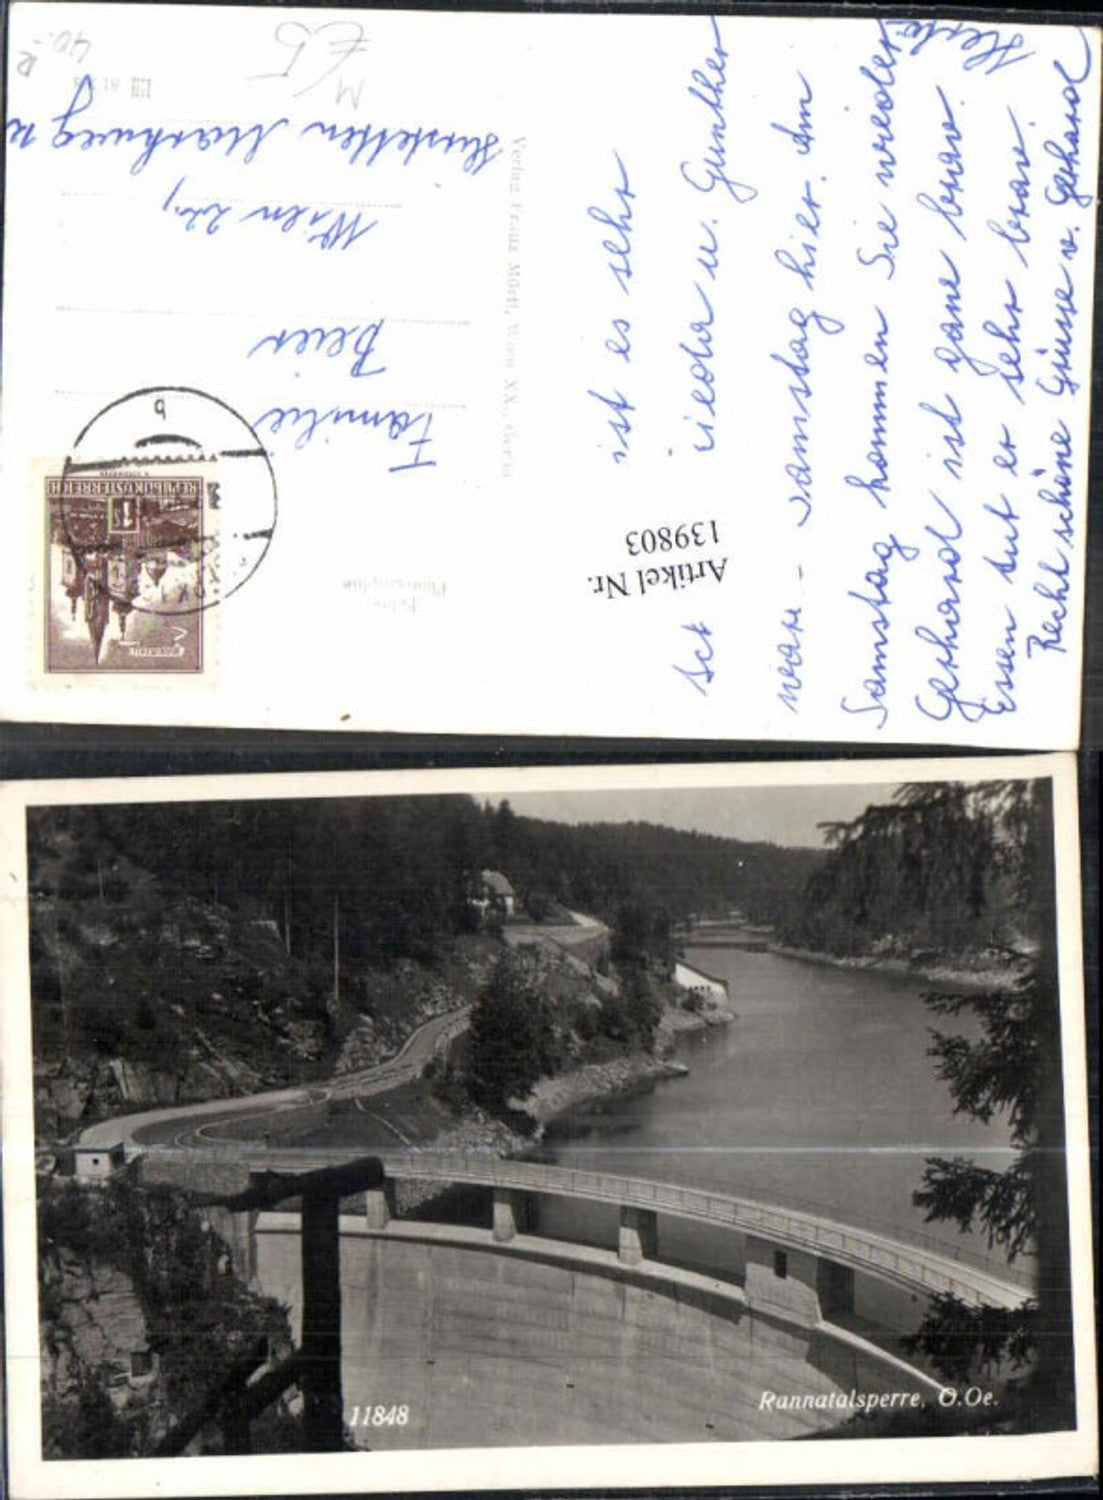 ist es sehr
u. Gunther
war - samstag hier. Am
Samstag kommen Sie wieder
Gerhard ist ganz brav.
Essen tut er sehr brav.
Recht schöne Grüsse v. Gerhard
Herta
Artikel Nr.
139803
Verlag Franz Mörtl, Wien XX., Gerin
Echte
Photographie
REPUBLIK ÖSTERREICH
Familie
Beier
Wien 22,
M
E5
40.-
11848
Rannatalsperre, O.Oe.